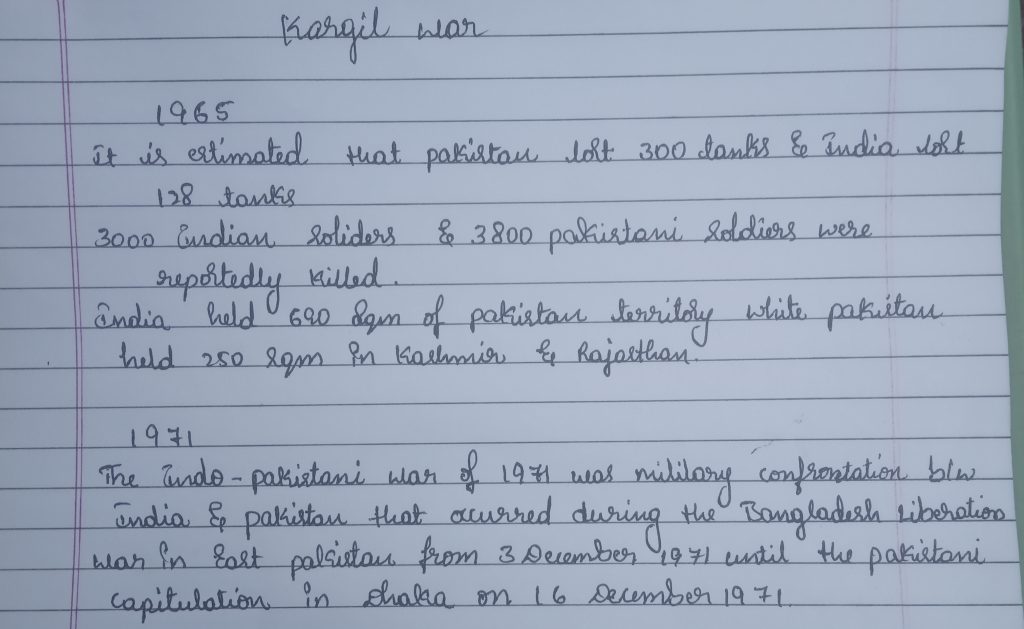 Kargil war
1965
it is estimated that pakistan lost 300 tanks & India lost
128 tanks
3000 Indian Soliders & 3800 pakistani Soldiers were
reportedly killed.
india held 690 Sqm of pakistan territory white pakistan
held 250 sqm in Kashmir & Rajasthan.
1971
The Indo-pakistani war of 1971 was mililary confrontation b/w
india & pakistan that ocurred during the Bangladesh Liberation
war in East pakistan from 3 December 1971 until the pakistani
capitulation in Dhaka on 16 December 1971.